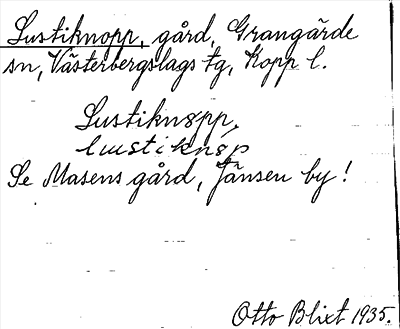 Lustiknopp, gård, Grangärde
sn, Västerbergslags tg, Kopp l.
Lustiknopp,
lustiknòp
Se Masens gård, Jänsen by!
Otto Blixt 1935.